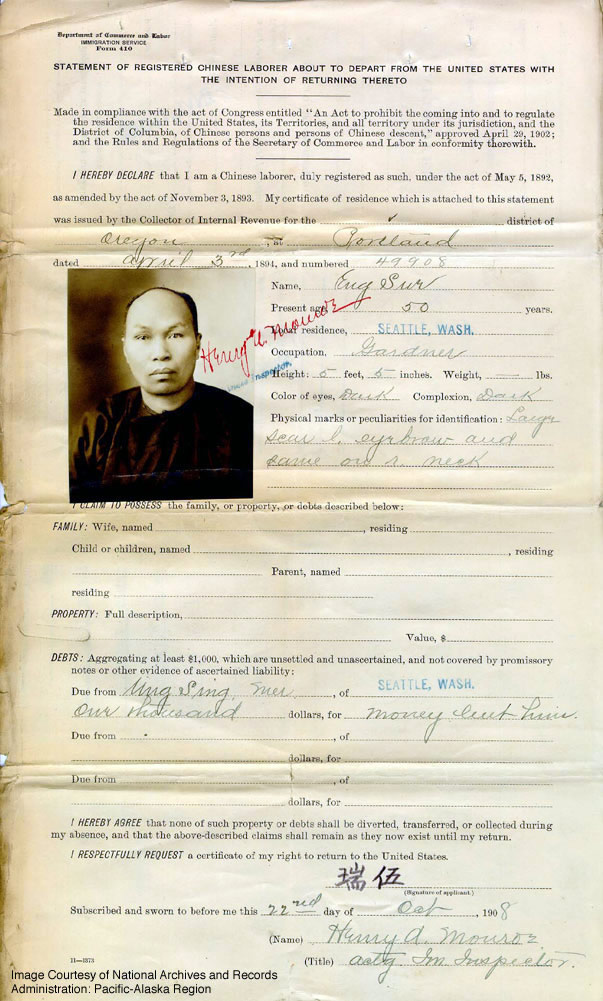 Department of Commerce and Labor
IMMIGRATION SERVICE
Form 410
STATEMENT OF REGISTERED CHINESE LABORER ABOUT TO DEPART FROM THE UNITED STATES WITH
THE INTENTION OF RETURNING THERETO
Made in compliance with the act of Congress entitled "An Act to prohibit the coming into and to regulate
the residence within the United States, its Territories, and all territory under its jurisdiction, and the
District of Columbia, of Chinese persons and persons of Chinese descent," approved April 29, 1902;
and the Rules and Regulations of the Secretary of Commerce and Labor in conformity therewith.
I HEREBY DECLARE that I am a Chinese laborer, duly registered as such, under the act of May 5, 1892,
as amended by the act of November 3, 1893. My certificate of residence which is attached to this statement
was issued by the Collector of Internal Revenue for the district of
Oregon, at Portland
dated April 3rd, 1894, and numbered 49908
Name, Eng Sur
Present age 50 years.
Local residence, SEATTLE, WASH.
Henry A. Monroe
Inspector.
Occupation, Gardner
Height: 5 feet, 5 inches. Weight, — lbs.
Color of eyes, Dark Complexion, Dark
Physical marks or peculiarities for identification: Large
scar l. eyebrow and
same on r. neck
I CLAIM TO POSSESS the family, or property, or debts described below:
FAMILY: Wife, named , residing
Child or children, named , residing
Parent, named
residing
PROPERTY: Full description,
Value, $
DEBTS: Aggregating at least $1,000, which are unsettled and unascertained, and not covered by promissory
notes or other evidence of ascertained liability:
Due from Ung Sing, mer, of SEATTLE, WASH.
One thousand dollars, for money lent him.
Due from , of
dollars, for
Due from , of
dollars, for
I HEREBY AGREE that none of such property or debts shall be diverted, transferred, or collected during
my absence, and that the above-described claims shall remain as they now exist until my return.
I RESPECTFULLY REQUEST a certificate of my right to return to the United States.
瑞伍
(Signature of applicant.)
Subscribed and sworn to before me this 22nd day of Oct, 1908
(Name) Henry A. Monroe
(Title) actg Im. Inspector.
11—1373
Image Courtesy of National Archives and Records
Administration: Pacific-Alaska Region